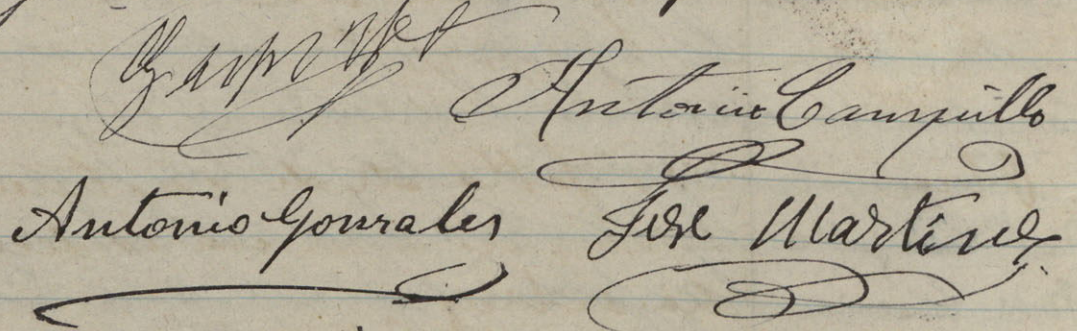 Antonio Campillo
Antonio Gonzales José Martinez